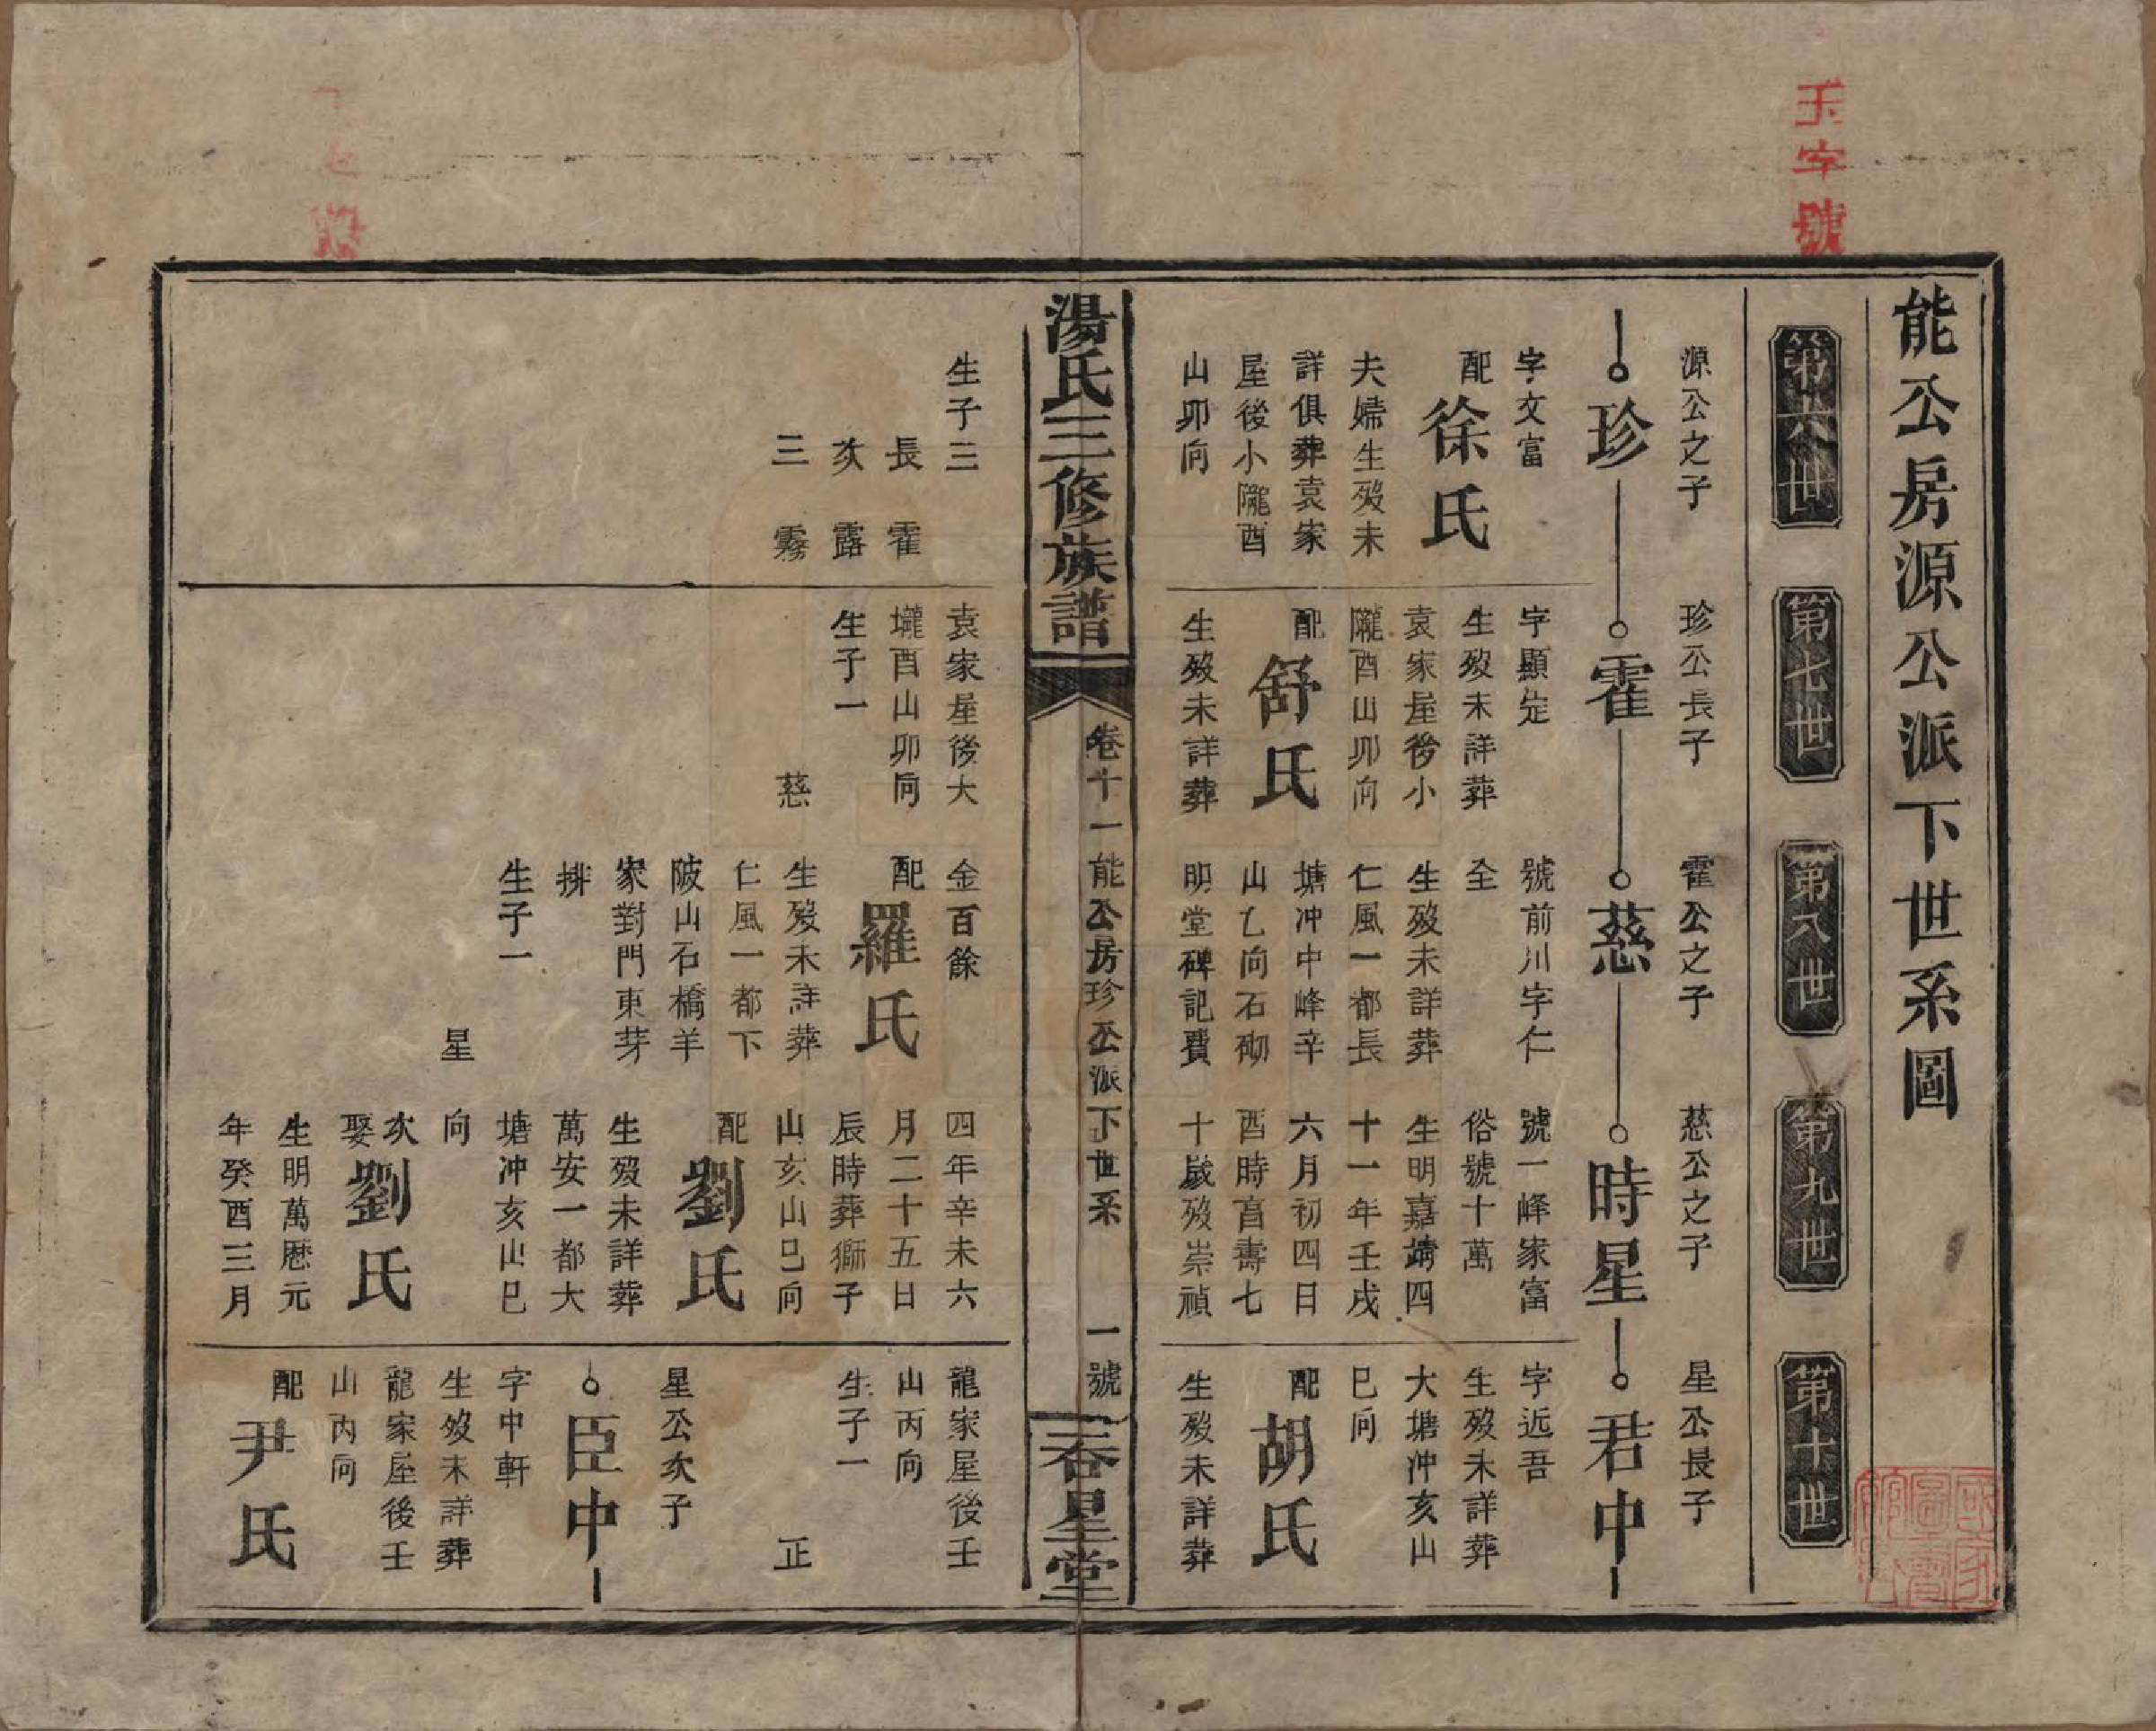 玉字號
能公房源公派下世系圖
第六世
第七世
第八世
第九世
第十世
源公之子
珍
字文富
配
徐氏
夫婦生歿未
詳俱葬袁家
屋後小隴酉
山卯向
珍公長子
霍
字顯定
生歿未詳葬
袁家屋後小
隴酉山卯向
配
舒氏
生歿未詳葬
霍公之子
慈
號前川字仁
全
生歿未詳葬
仁風一都長
塘冲中峰辛
山乙向石砌
明堂碑記費
慈公之子
時星
號一峰家富
俗號十萬
生明嘉靖四
十一年壬戌
六月初四日
酉時享壽七
十歲歿崇禎
星公長子
君中
字近吾
生歿未詳葬
大塘冲亥山
巳向
配
胡氏
生歿未詳葬
湯氏三修族譜
卷十一能公房珍公派下世系
一號
春星堂
生子三
長 霍
次 露
三 霧
袁家屋後大
壠酉山卯向
生子一
慈
金百餘
配
羅氏
生歿未詳葬
仁風一都下
陂山石橋羊
家對門東芽
排
生子一
星
四年辛未六
月二十五日
辰時葬獅子
山亥山巳向
配
劉氏
生歿未詳葬
萬安一都大
塘冲亥山巳
向
次娶
劉氏
生明萬厯元
年癸酉三月
龍家屋後壬
山丙向
生子一
正
星公次子
臣中
字中軒
生歿未詳葬
龍家屋後壬
山丙向
配
尹氏